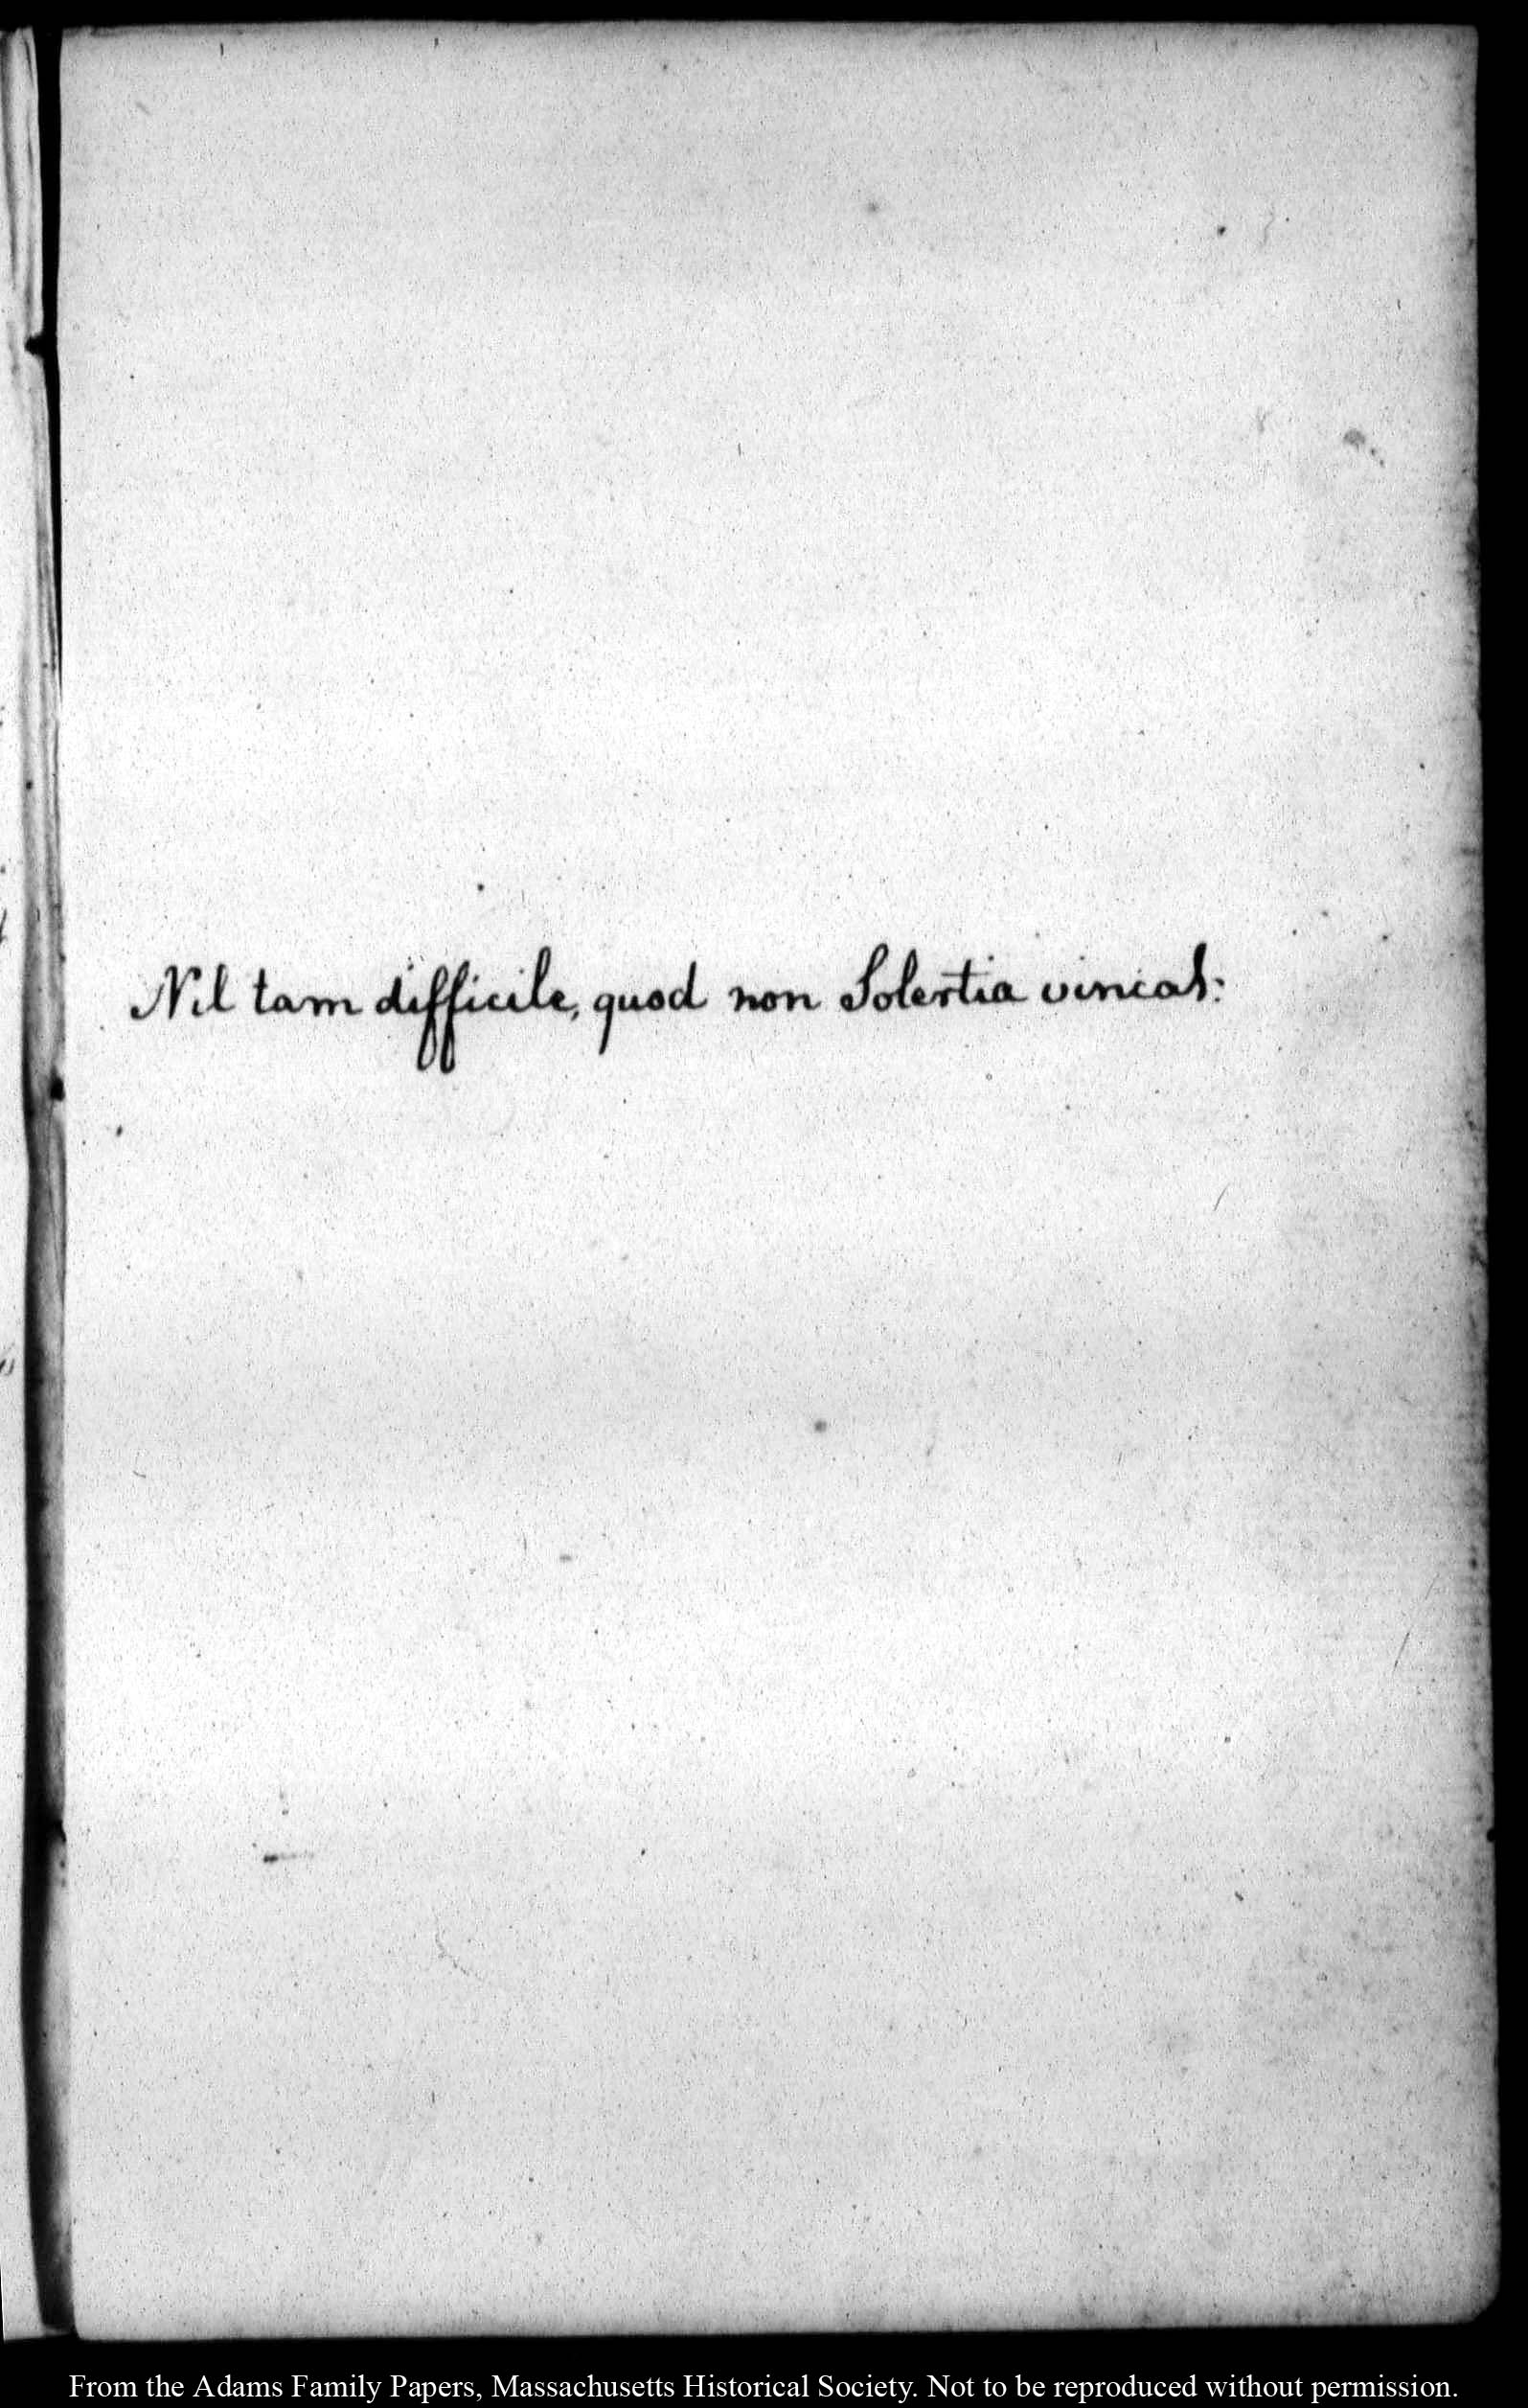 Nil tam difficile, quod non Solertia vincat:
From the Adams Family Papers, Massachusetts Historical Society. Not to be reproduced without permission.